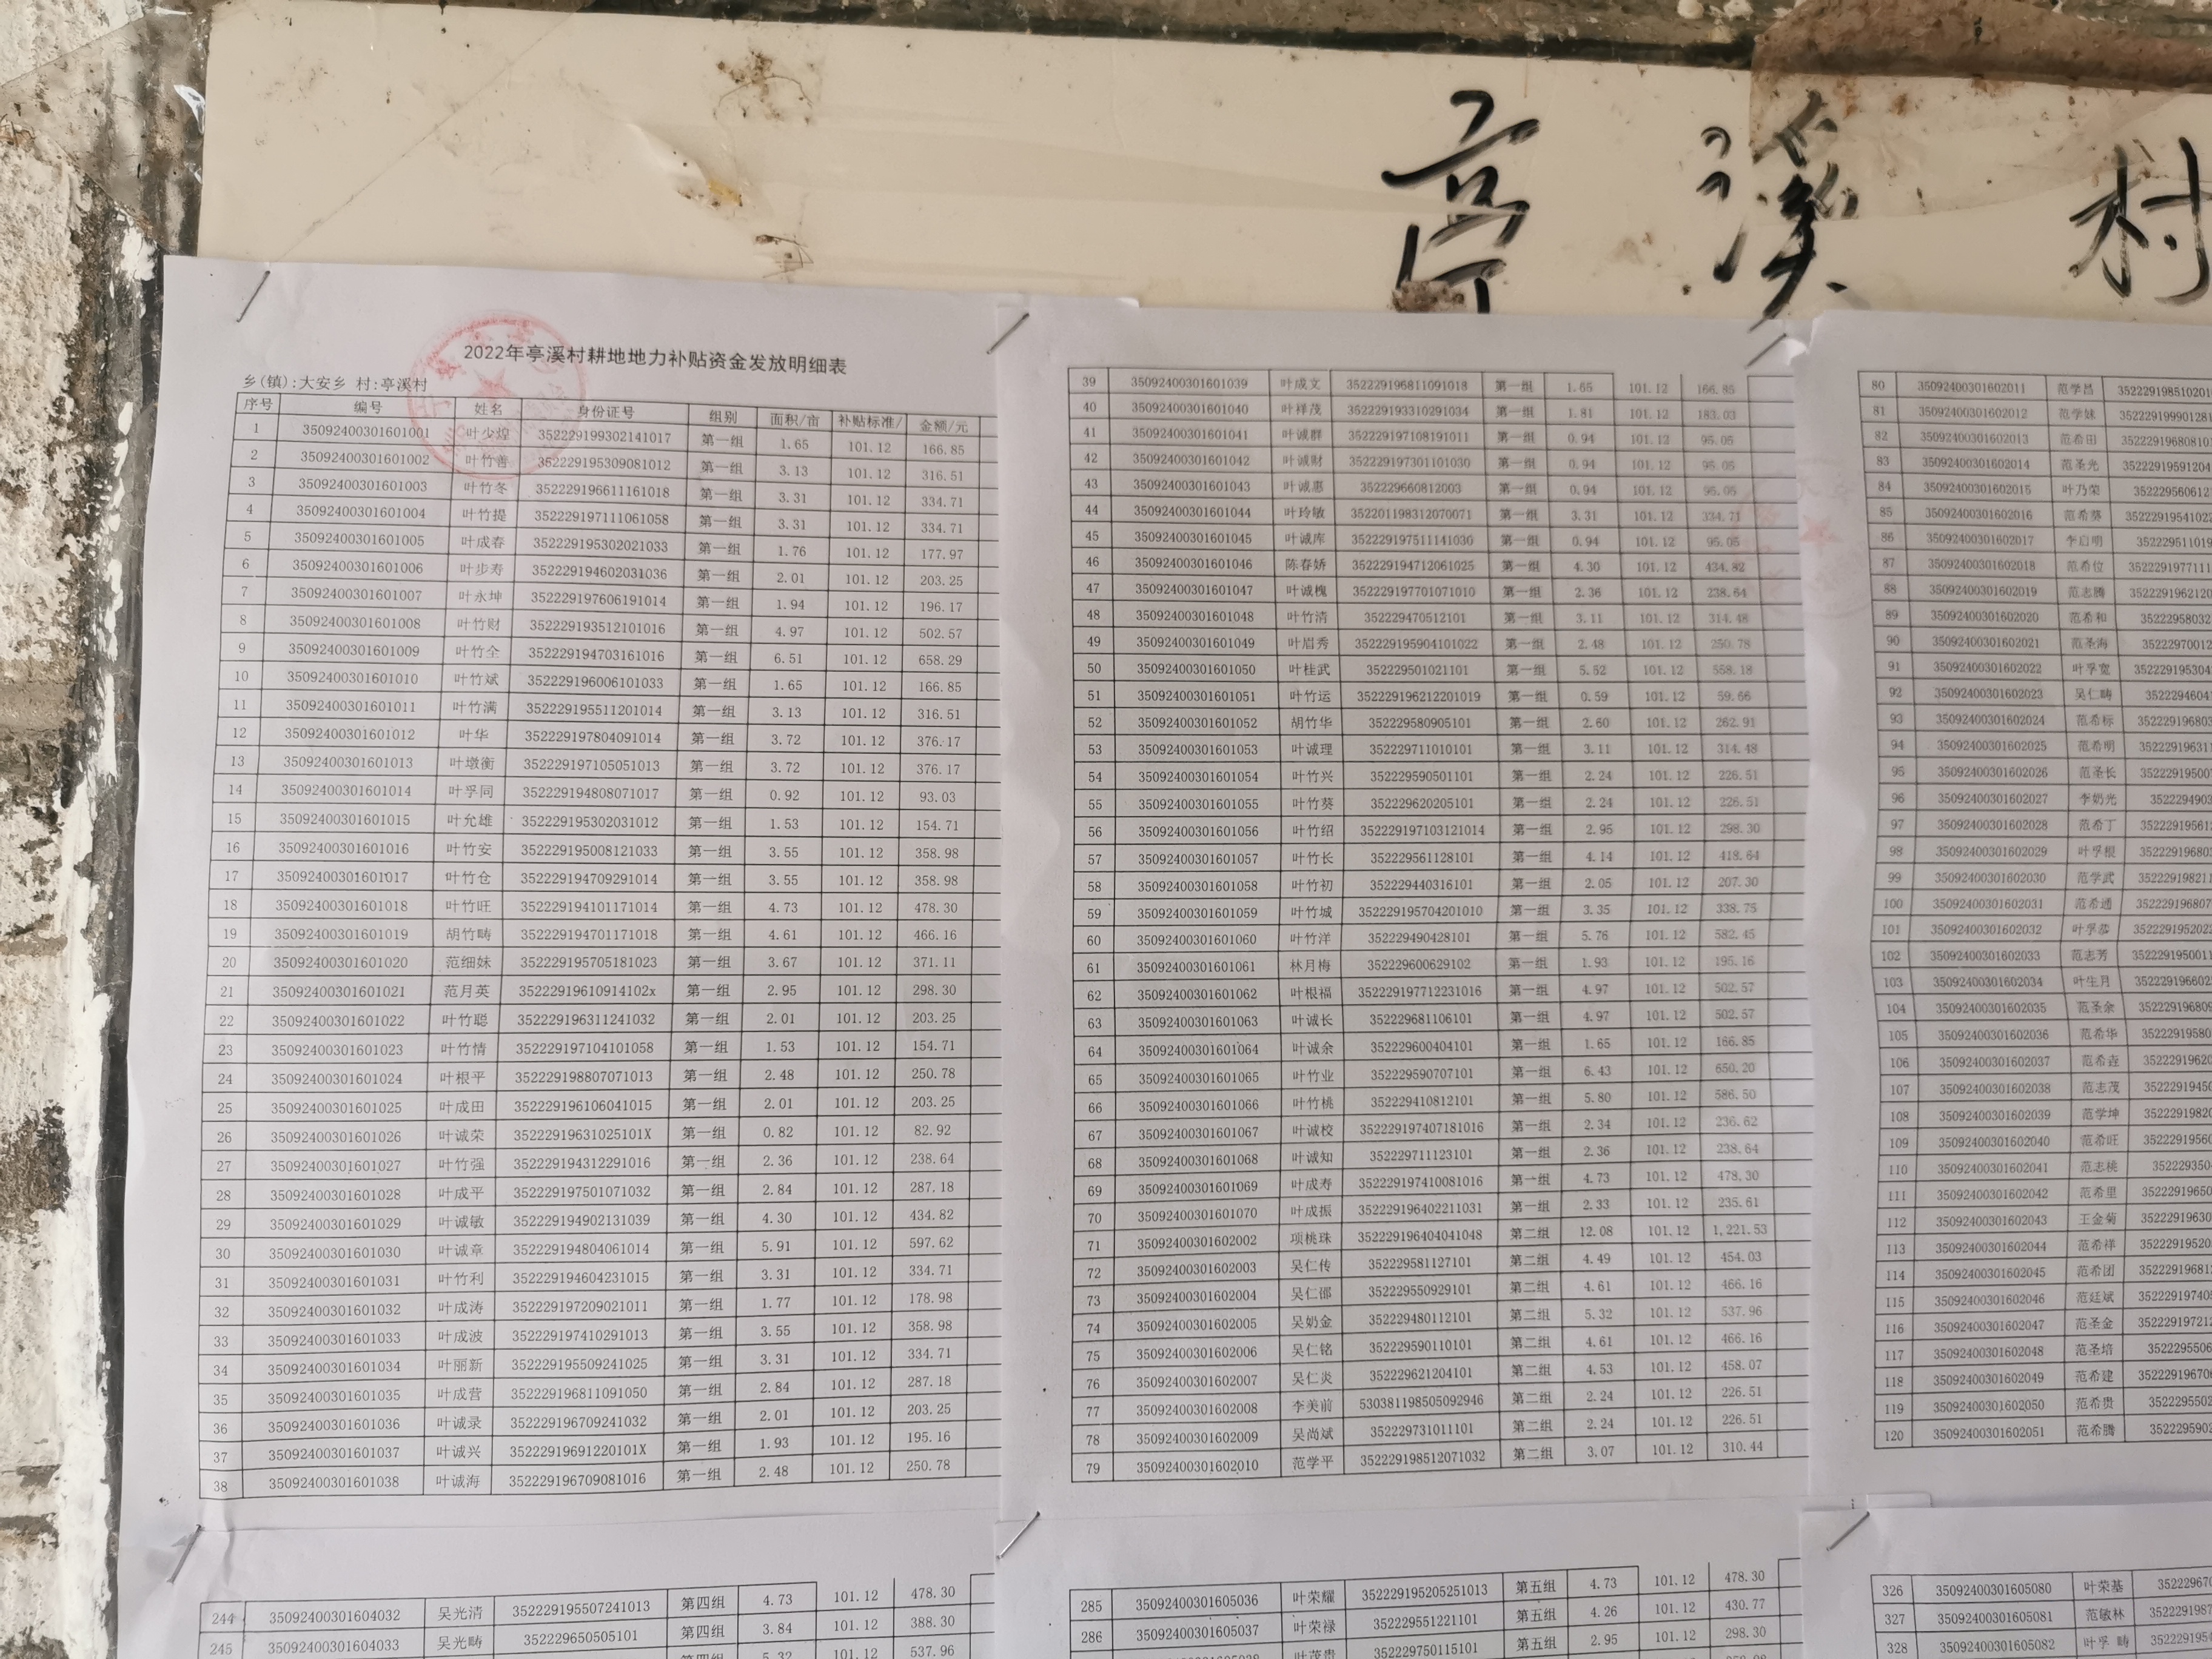 亭 溪 村
2022年亭溪村耕地地力补贴资金发放明细表
乡(镇):大安乡 村:亭溪村
序号 编号 姓名 身份证号 组别 面积/亩 补贴标准/ 金额/元
1 35092400301601001 叶少煌 352229199302141017 第一组 1.65 101.12 166.85
2 35092400301601002 叶竹善 352229195309081012 第一组 3.13 101.12 316.51
3 35092400301601003 叶竹冬 352229196611161018 第一组 3.31 101.12 334.71
4 35092400301601004 叶竹提 352229197111061058 第一组 3.31 101.12 334.71
5 35092400301601005 叶成春 352229195302021033 第一组 1.76 101.12 177.97
6 35092400301601006 叶步寿 352229194602031036 第一组 2.01 101.12 203.25
7 35092400301601007 叶永坤 352229197606191014 第一组 1.94 101.12 196.17
8 35092400301601008 叶竹财 352229193512101016 第一组 4.97 101.12 502.57
9 35092400301601009 叶竹全 352229194703161016 第一组 6.51 101.12 658.29
10 35092400301601010 叶竹斌 352229196006101033 第一组 1.65 101.12 166.85
11 35092400301601011 叶竹满 352229195511201014 第一组 3.13 101.12 316.51
12 35092400301601012 叶华 352229197804091014 第一组 3.72 101.12 376.17
13 35092400301601013 叶墩衡 352229197105051013 第一组 3.72 101.12 376.17
14 35092400301601014 叶孚同 352229194808071017 第一组 0.92 101.12 93.03
15 35092400301601015 叶允雄 352229195302031012 第一组 1.53 101.12 154.71
16 35092400301601016 叶竹安 352229195008121033 第一组 3.55 101.12 358.98
17 35092400301601017 叶竹仓 352229194709291014 第一组 3.55 101.12 358.98
18 35092400301601018 叶竹旺 352229194101171014 第一组 4.73 101.12 478.30
19 35092400301601019 胡竹畴 352229194701171018 第一组 4.61 101.12 466.16
20 35092400301601020 范细妹 352229195705181023 第一组 3.67 101.12 371.11
21 35092400301601021 范月英 35222919610914102x 第一组 2.95 101.12 298.30
22 35092400301601022 叶竹聪 352229196311241032 第一组 2.01 101.12 203.25
23 35092400301601023 叶竹情 352229197104101058 第一组 1.53 101.12 154.71
24 35092400301601024 叶根平 352229198807071013 第一组 2.48 101.12 250.78
25 35092400301601025 叶成田 352229196106041015 第一组 2.01 101.12 203.25
26 35092400301601026 叶诚荣 35222919631025101X 第一组 0.82 101.12 82.92
27 35092400301601027 叶竹强 352229194312291016 第一组 2.36 101.12 238.64
28 35092400301601028 叶成平 352229197501071032 第一组 2.84 101.12 287.18
29 35092400301601029 叶诚敏 352229194902131039 第一组 4.30 101.12 434.82
30 35092400301601030 叶诚章 352229194804061014 第一组 5.91 101.12 597.62
31 35092400301601031 叶竹利 352229194604231015 第一组 3.31 101.12 334.71
32 35092400301601032 叶成涛 352229197209021011 第一组 1.77 101.12 178.98
33 35092400301601033 叶成波 352229197410291013 第一组 3.55 101.12 358.98
34 35092400301601034 叶丽新 352229195509241025 第一组 3.31 101.12 334.71
35 35092400301601035 叶成营 352229196811091050 第一组 2.84 101.12 287.18
36 35092400301601036 叶诚录 352229196709241032 第一组 2.01 101.12 203.25
37 35092400301601037 叶诚兴 35222919691220101X 第一组 1.93 101.12 195.16
38 35092400301601038 叶诚海 352229196709081016 第一组 2.48 101.12 250.78
39 35092400301601039 叶成文 352229196811091018 第一组 1.65 101.12 166.85
40 35092400301601040 叶祥茂 352229193310291034 第一组 1.81 101.12 183.03
41 35092400301601041 叶诚群 352229197108191011 第一组 0.94 101.12 95.05
42 35092400301601042 叶诚财 352229197301101030 第一组 0.94 101.12 95.05
43 35092400301601043 叶诚惠 352229660812003 第一组 0.94 101.12 95.05
44 35092400301601044 叶玲敏 352201198312070071 第一组 3.31 101.12 334.71
45 35092400301601045 叶诚库 352229197511141030 第一组 0.94 101.12 95.05
46 35092400301601046 陈春娇 352229194712061025 第一组 4.30 101.12 434.82
47 35092400301601047 叶诚槐 352229197701071010 第一组 2.36 101.12 238.64
48 35092400301601048 叶竹清 352229470512101 第一组 3.11 101.12 314.48
49 35092400301601049 叶眉秀 352229195904101022 第一组 2.48 101.12 250.78
50 35092400301601050 叶桂武 352229501021101 第一组 5.52 101.12 558.18
51 35092400301601051 叶竹运 352229196212201019 第一组 0.59 101.12 59.66
52 35092400301601052 胡竹华 352229580905101 第一组 2.60 101.12 262.91
53 35092400301601053 叶诚理 352229711010101 第一组 3.11 101.12 314.48
54 35092400301601054 叶竹兴 352229590501101 第一组 2.24 101.12 226.51
55 35092400301601055 叶竹葵 352229620205101 第一组 2.24 101.12 226.51
56 35092400301601056 叶竹绍 352229197103121014 第一组 2.95 101.12 298.30
57 35092400301601057 叶竹长 352229561128101 第一组 4.14 101.12 418.64
58 35092400301601058 叶竹初 352229440316101 第一组 2.05 101.12 207.30
59 35092400301601059 叶竹城 352229195704201010 第一组 3.35 101.12 338.75
60 35092400301601060 叶竹洋 352229490428101 第一组 5.76 101.12 582.45
61 35092400301601061 林月梅 352229600629102 第一组 1.93 101.12 195.16
62 35092400301601062 叶根福 352229197712231016 第一组 4.97 101.12 502.57
63 35092400301601063 叶诚长 352229681106101 第一组 4.97 101.12 502.57
64 35092400301601064 叶诚余 352229600404101 第一组 1.65 101.12 166.85
65 35092400301601065 叶竹业 352229590707101 第一组 6.43 101.12 650.20
66 35092400301601066 叶竹桃 352229410812101 第一组 5.80 101.12 586.50
67 35092400301601067 叶诚校 352229197407181016 第一组 2.34 101.12 236.62
68 35092400301601068 叶诚知 352229711123101 第一组 2.36 101.12 238.64
69 35092400301601069 叶成寿 352229197410081016 第一组 4.73 101.12 478.30
70 35092400301601070 叶成振 352229196402211031 第一组 2.33 101.12 235.61
71 35092400301602002 项桃珠 352229196404041048 第二组 12.08 101.12 1,221.53
72 35092400301602003 吴仁传 352229581127101 第二组 4.49 101.12 454.03
73 35092400301602004 吴仁邵 352229550929101 第二组 4.61 101.12 466.16
74 35092400301602005 吴奶金 352229480112101 第二组 5.32 101.12 537.96
75 35092400301602006 吴仁铭 352229590110101 第二组 4.61 101.12 466.16
76 35092400301602007 吴仁炎 352229621204101 第二组 4.53 101.12 458.07
77 35092400301602008 李美前 530381198505092946 第二组 2.24 101.12 226.51
78 35092400301602009 吴尚斌 352229731011101 第二组 2.24 101.12 226.51
79 35092400301602010 范学平 352229198512071032 第二组 3.07 101.12 310.44
80 35092400301602011 范学昌 3522291985102010
81 35092400301602012 范学妹 352229199901281
82 35092400301602013 范希田 35222919680810
83 35092400301602014 范圣光 35222919591204
84 35092400301602015 叶乃荣 35222956061
85 35092400301602016 范希葵 35222919541022
86 35092400301602017 李启明 352229511019
87 35092400301602018 范希位 35222919771111
88 35092400301602019 范志腾 3522291962120
89 35092400301602020 范希和 35222958032
90 35092400301602021 范圣海 35222970012
91 35092400301602022 叶孚宽 352229195304
92 35092400301602023 吴仁畴 3522294604
93 35092400301602024 范希标 352229196803
94 35092400301602025 范希明 35222919631
95 35092400301602026 范圣长 352229195007
96 35092400301602027 李奶光 352229490
97 35092400301602028 范希丁 35222919561
98 35092400301602029 叶孚根 352229196803
99 35092400301602030 范学武 35222919821
100 35092400301602031 范希通 352229196807
101 35092400301602032 叶孚恭 35222919520
102 35092400301602033 范志芳 352229195001
103 35092400301602034 叶生月 35222919660
104 35092400301602035 范圣余 35222919680
105 35092400301602036 范希华 35222919580
106 35092400301602037 范希垚 3522291962
107 35092400301602038 范志茂 35222919450
108 35092400301602039 范学坤 352229198
109 35092400301602040 范希旺 352229195
110 35092400301602041 范志桃 35222935
111 35092400301602042 范希里 352229196
112 35092400301602043 王金菊 352229196
113 35092400301602044 范希祥 352229195
114 35092400301602045 范希团 352229196
115 35092400301602046 范廷斌 352229197
116 35092400301602047 范圣金 352229197
117 35092400301602048 范圣培 35222955
118 35092400301602049 范希建 352229196
119 35092400301602050 范希贵 35222955
120 35092400301602051 范希腾 35222959
244 35092400301604032 吴光清 352229195507241013 第四组 4.73 101.12 478.30
245 35092400301604033 吴光畴 352229650505101 第四组 3.84 101.12 388.30
101.12 537.96
285 35092400301605036 叶荣耀 352229195205251013 第五组 4.73 101.12 478.30
286 35092400301605037 叶荣禄 352229551221101 第五组 4.26 101.12 430.77
叶茂贵 352229750115101 第五组 2.95 101.12 298.30
326 35092400301605080 叶荣基 35222967
327 35092400301605081 范敏林 352229198
328 35092400301605082 叶孚 畴 35222919